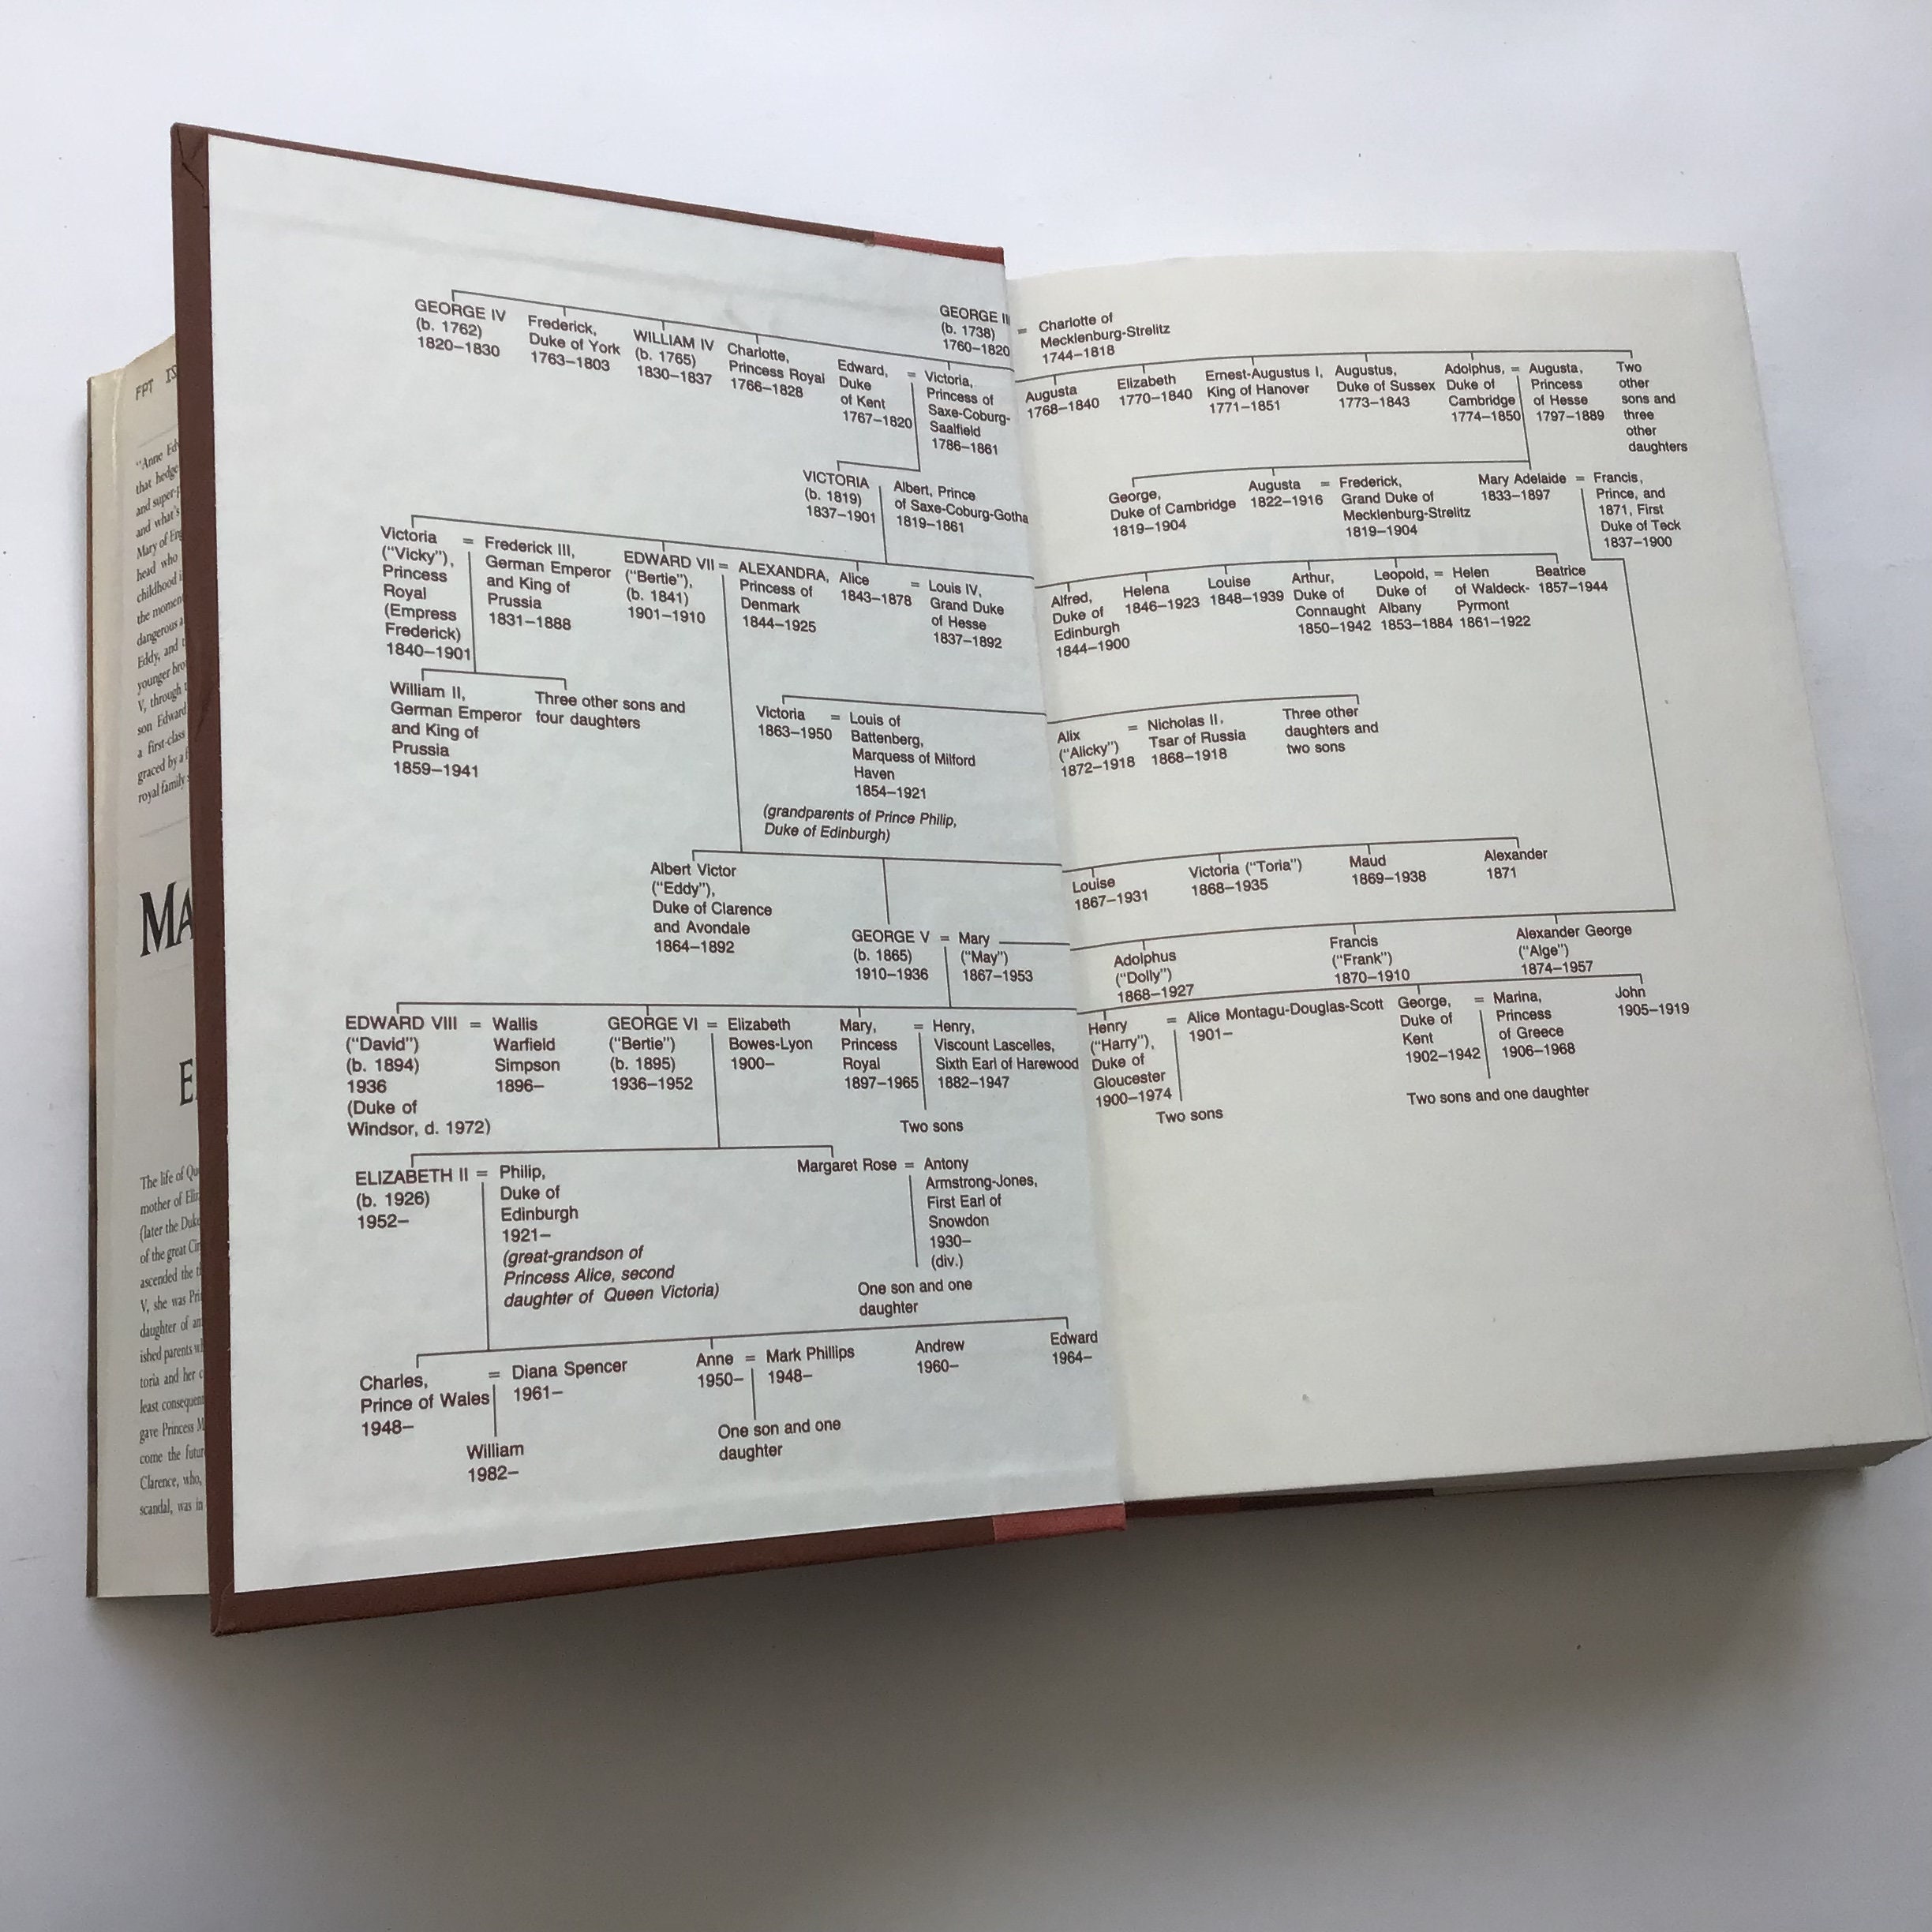 FPT
"Anne
that
and
and what's
Mary of
head who
childhood
the
dangerous
Eddy, and
younger
V, through
son Edward
a first-class
graced by a
royal family
MA
E
The life of
mother of
(later the
of the great
ascended the
V, she was
daughter of
ished parents
toria and her
least
gave Princess
come the
Clarence, who,
scandal, was in
GEORGE III
(b. 1738)
1760–1820
= Charlotte of
Mecklenburg-Strelitz
1744–1818
GEORGE IV
(b. 1762)
1820–1830
Frederick,
Duke of York
1763–1803
WILLIAM IV
(b. 1765)
1830–1837
Charlotte,
Princess Royal
1766–1828
Edward,
Duke
of Kent
1767–1820
= Victoria,
Princess of
Saxe-Coburg-
Saalfield
1786–1861
Augusta
1768–1840
Elizabeth
1770–1840
Ernest-Augustus I,
King of Hanover
1771–1851
Augustus,
Duke of Sussex
1773–1843
Adolphus,
Duke of
Cambridge
1774–1850
= Augusta,
Princess
of Hesse
1797–1889
Two
other
sons and
three
other
daughters
VICTORIA
(b. 1819)
1837–1901
Albert, Prince
of Saxe-Coburg-Gotha
1819–1861
George,
Duke of Cambridge
1819–1904
Augusta
1822–1916
= Frederick,
Grand Duke of
Mecklenburg-Strelitz
1819–1904
Mary Adelaide
1833–1897
= Francis,
Prince, and
1871, First
Duke of Teck
1837–1900
Victoria
("Vicky"),
Princess
Royal
(Empress
Frederick)
1840–1901
= Frederick III,
German Emperor
and King of
Prussia
1831–1888
EDWARD VII
("Bertie"),
(b. 1841)
1901–1910
= ALEXANDRA,
Princess of
Denmark
1844–1925
Alice
1843–1878
= Louis IV,
Grand Duke
of Hesse
1837–1892
Alfred,
Duke of
Edinburgh
1844–1900
Helena
1846–1923
Louise
1848–1939
Arthur,
Duke of
Connaught
1850–1942
Leopold,
Duke of
Albany
1853–1884
= Helen
of Waldeck-
Pyrmont
1861–1922
Beatrice
1857–1944
William II,
German Emperor
and King of
Prussia
1859–1941
Three other sons and
four daughters
Victoria
1863–1950
= Louis of
Battenberg,
Marquess of Milford
Haven
1854–1921
(grandparents of Prince Philip,
Duke of Edinburgh)
Alix
("Alicky")
1872–1918
= Nicholas II,
Tsar of Russia
1868–1918
Three other
daughters and
two sons
Albert Victor
("Eddy"),
Duke of Clarence
and Avondale
1864–1892
GEORGE V
(b. 1865)
1910–1936
= Mary
("May")
1867–1953
Louise
1867–1931
Victoria ("Toria")
1868–1935
Maud
1869–1938
Alexander
1871
Adolphus
("Dolly")
1868–1927
Francis
("Frank")
1870–1910
Alexander George
("Alge")
1874–1957
EDWARD VIII
("David")
(b. 1894)
1936
(Duke of
Windsor, d. 1972)
= Wallis
Warfield
Simpson
1896–
GEORGE VI
("Bertie")
(b. 1895)
1936–1952
= Elizabeth
Bowes-Lyon
1900–
Mary,
Princess
Royal
1897–1965
= Henry,
Viscount Lascelles,
Sixth Earl of Harewood
1882–1947
Two sons
Henry
("Harry"),
Duke of
Gloucester
1900–1974
= Alice Montagu-Douglas-Scott
1901–
Two sons
George,
Duke of
Kent
1902–1942
= Marina,
Princess
of Greece
1906–1968
Two sons and one daughter
John
1905–1919
ELIZABETH II
(b. 1926)
1952–
= Philip,
Duke of
Edinburgh
1921–
(great-grandson of
Princess Alice, second
daughter of Queen Victoria)
Margaret Rose
= Antony
Armstrong-Jones,
First Earl of
Snowdon
1930–
(div.)
One son and one
daughter
Charles,
Prince of Wales
1948–
= Diana Spencer
1961–
William
1982–
Anne
1950–
= Mark Phillips
1948–
One son and one
daughter
Andrew
1960–
Edward
1964–